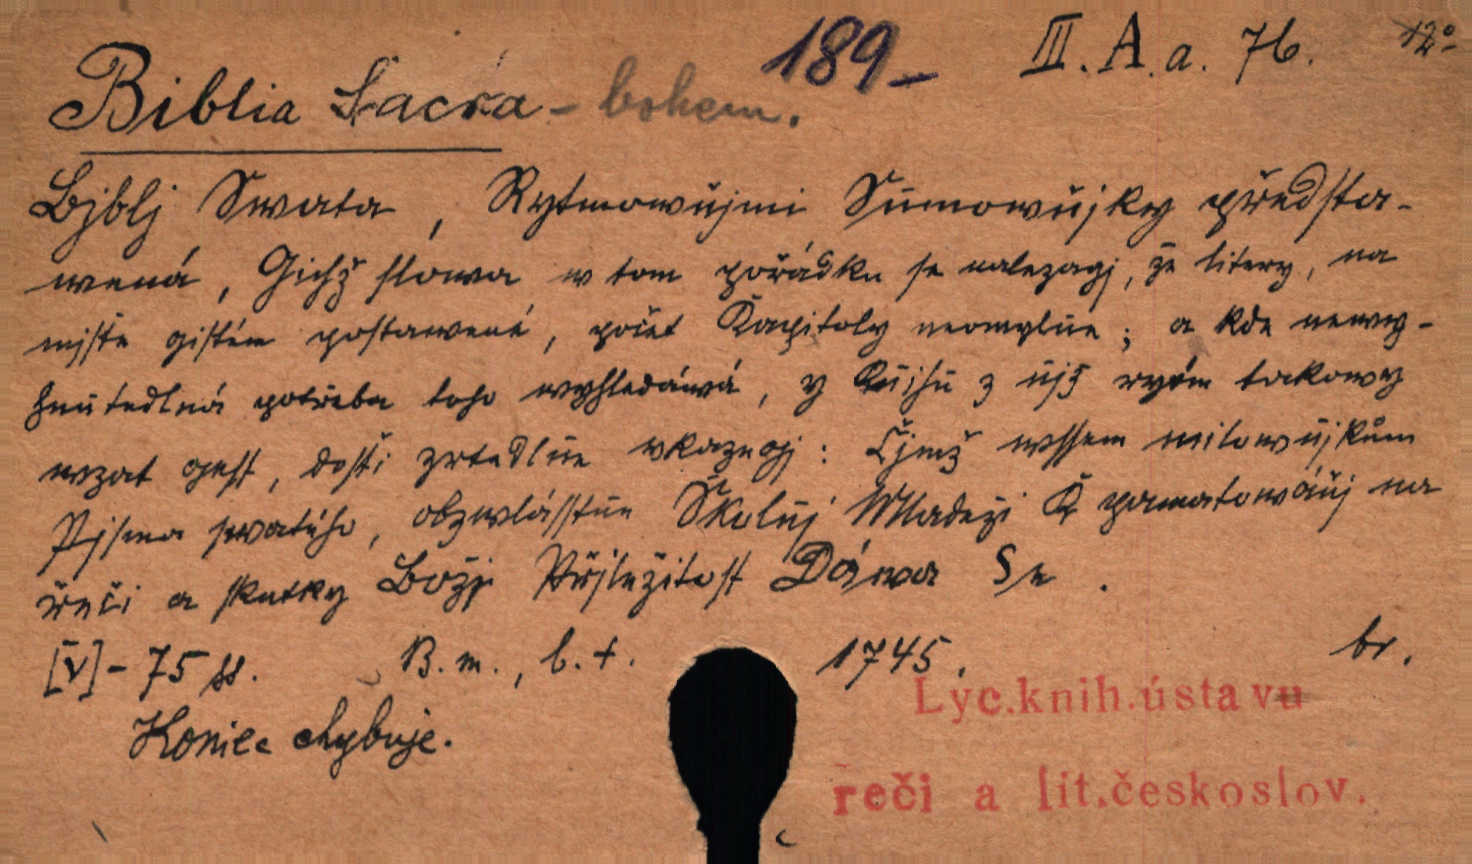 189-
III. A. a. 76. 12°
Biblia Sacra - bohem.
Bjblj Swata, Rytmownjmi Sumownjky předsta-
wená, Gichž slowa w tom pořádku se nalezagj, že litery, na
mjstě gistém postawené, počet Kapitoly neomylně; a kde newy-
hnutedlná potřeba toho wyhledáwá, y Knjhu z njž rým takowy
wzat gest, dosti zrtedlně vkazugj: Čjmž wssem milownjkům
Pjsma swatého, obzwlásstně Školnj Mladeži K pamatowánj na
řeči a skutky Božj Přjležitost Dáwa Se.
[V] - 75 ss. B. m., b. t. 1745. br.
Koniec chybuje.
Lyc.knih.ústavu
řeči a lit.českoslov.